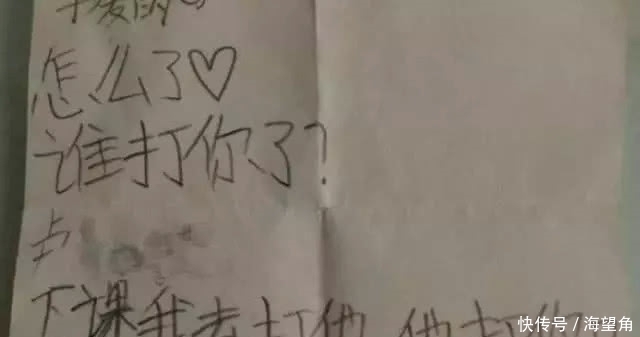 怎么了♡
谁打你了?
卢
下课我去打他 他打你
快传号 / 海望角